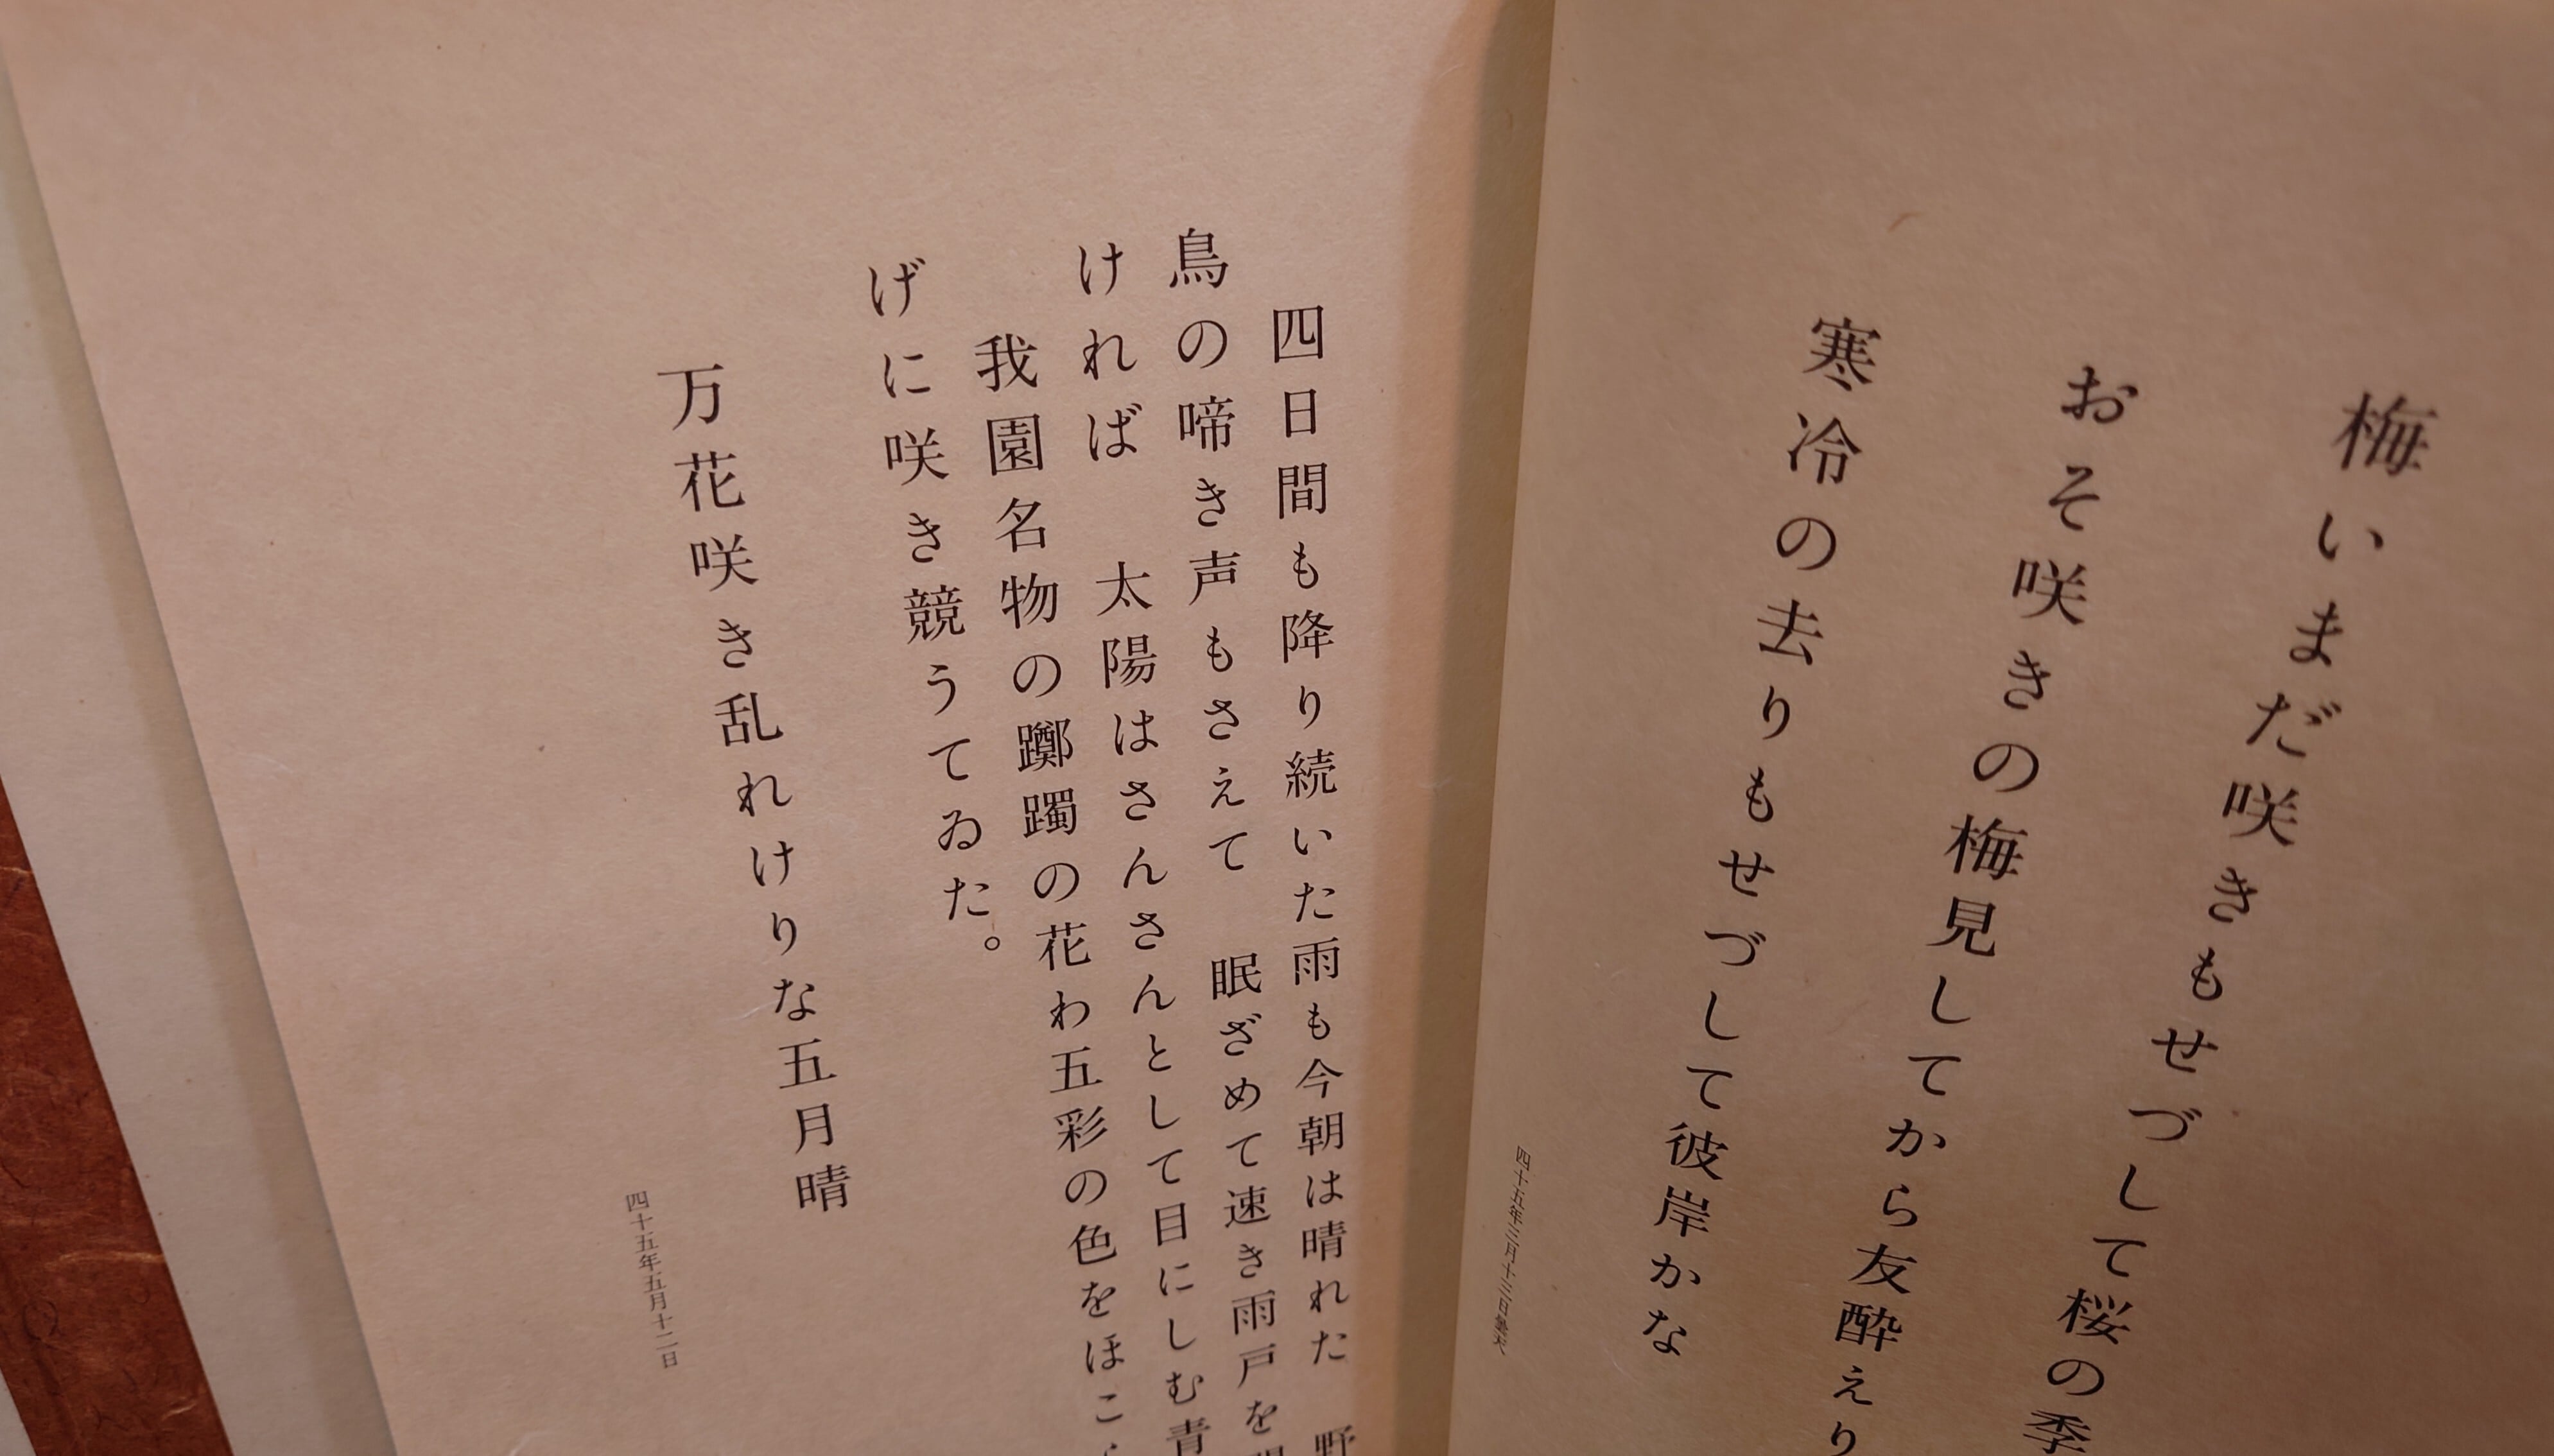 梅いまだ咲きもせづして桜の季
おそ咲きの梅見してから友酔えり
寒冷の去りもせづして彼岸かな
四十五年三月十三日
四日間も降り続いた雨も今朝は晴れた　野
鳥の啼き声もさえて　眠ざめて速き雨戸を
ければ　太陽はさんさんとして目にしむ青
我園名物の躑躅の花わ五彩の色をほこ
げに咲き競うてゐた。
万花咲き乱れけりな五月晴
四十五年五月十二日